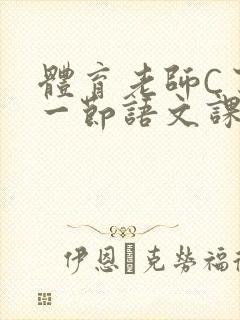 體育老師C
一節語文課
伊恩 克勞福